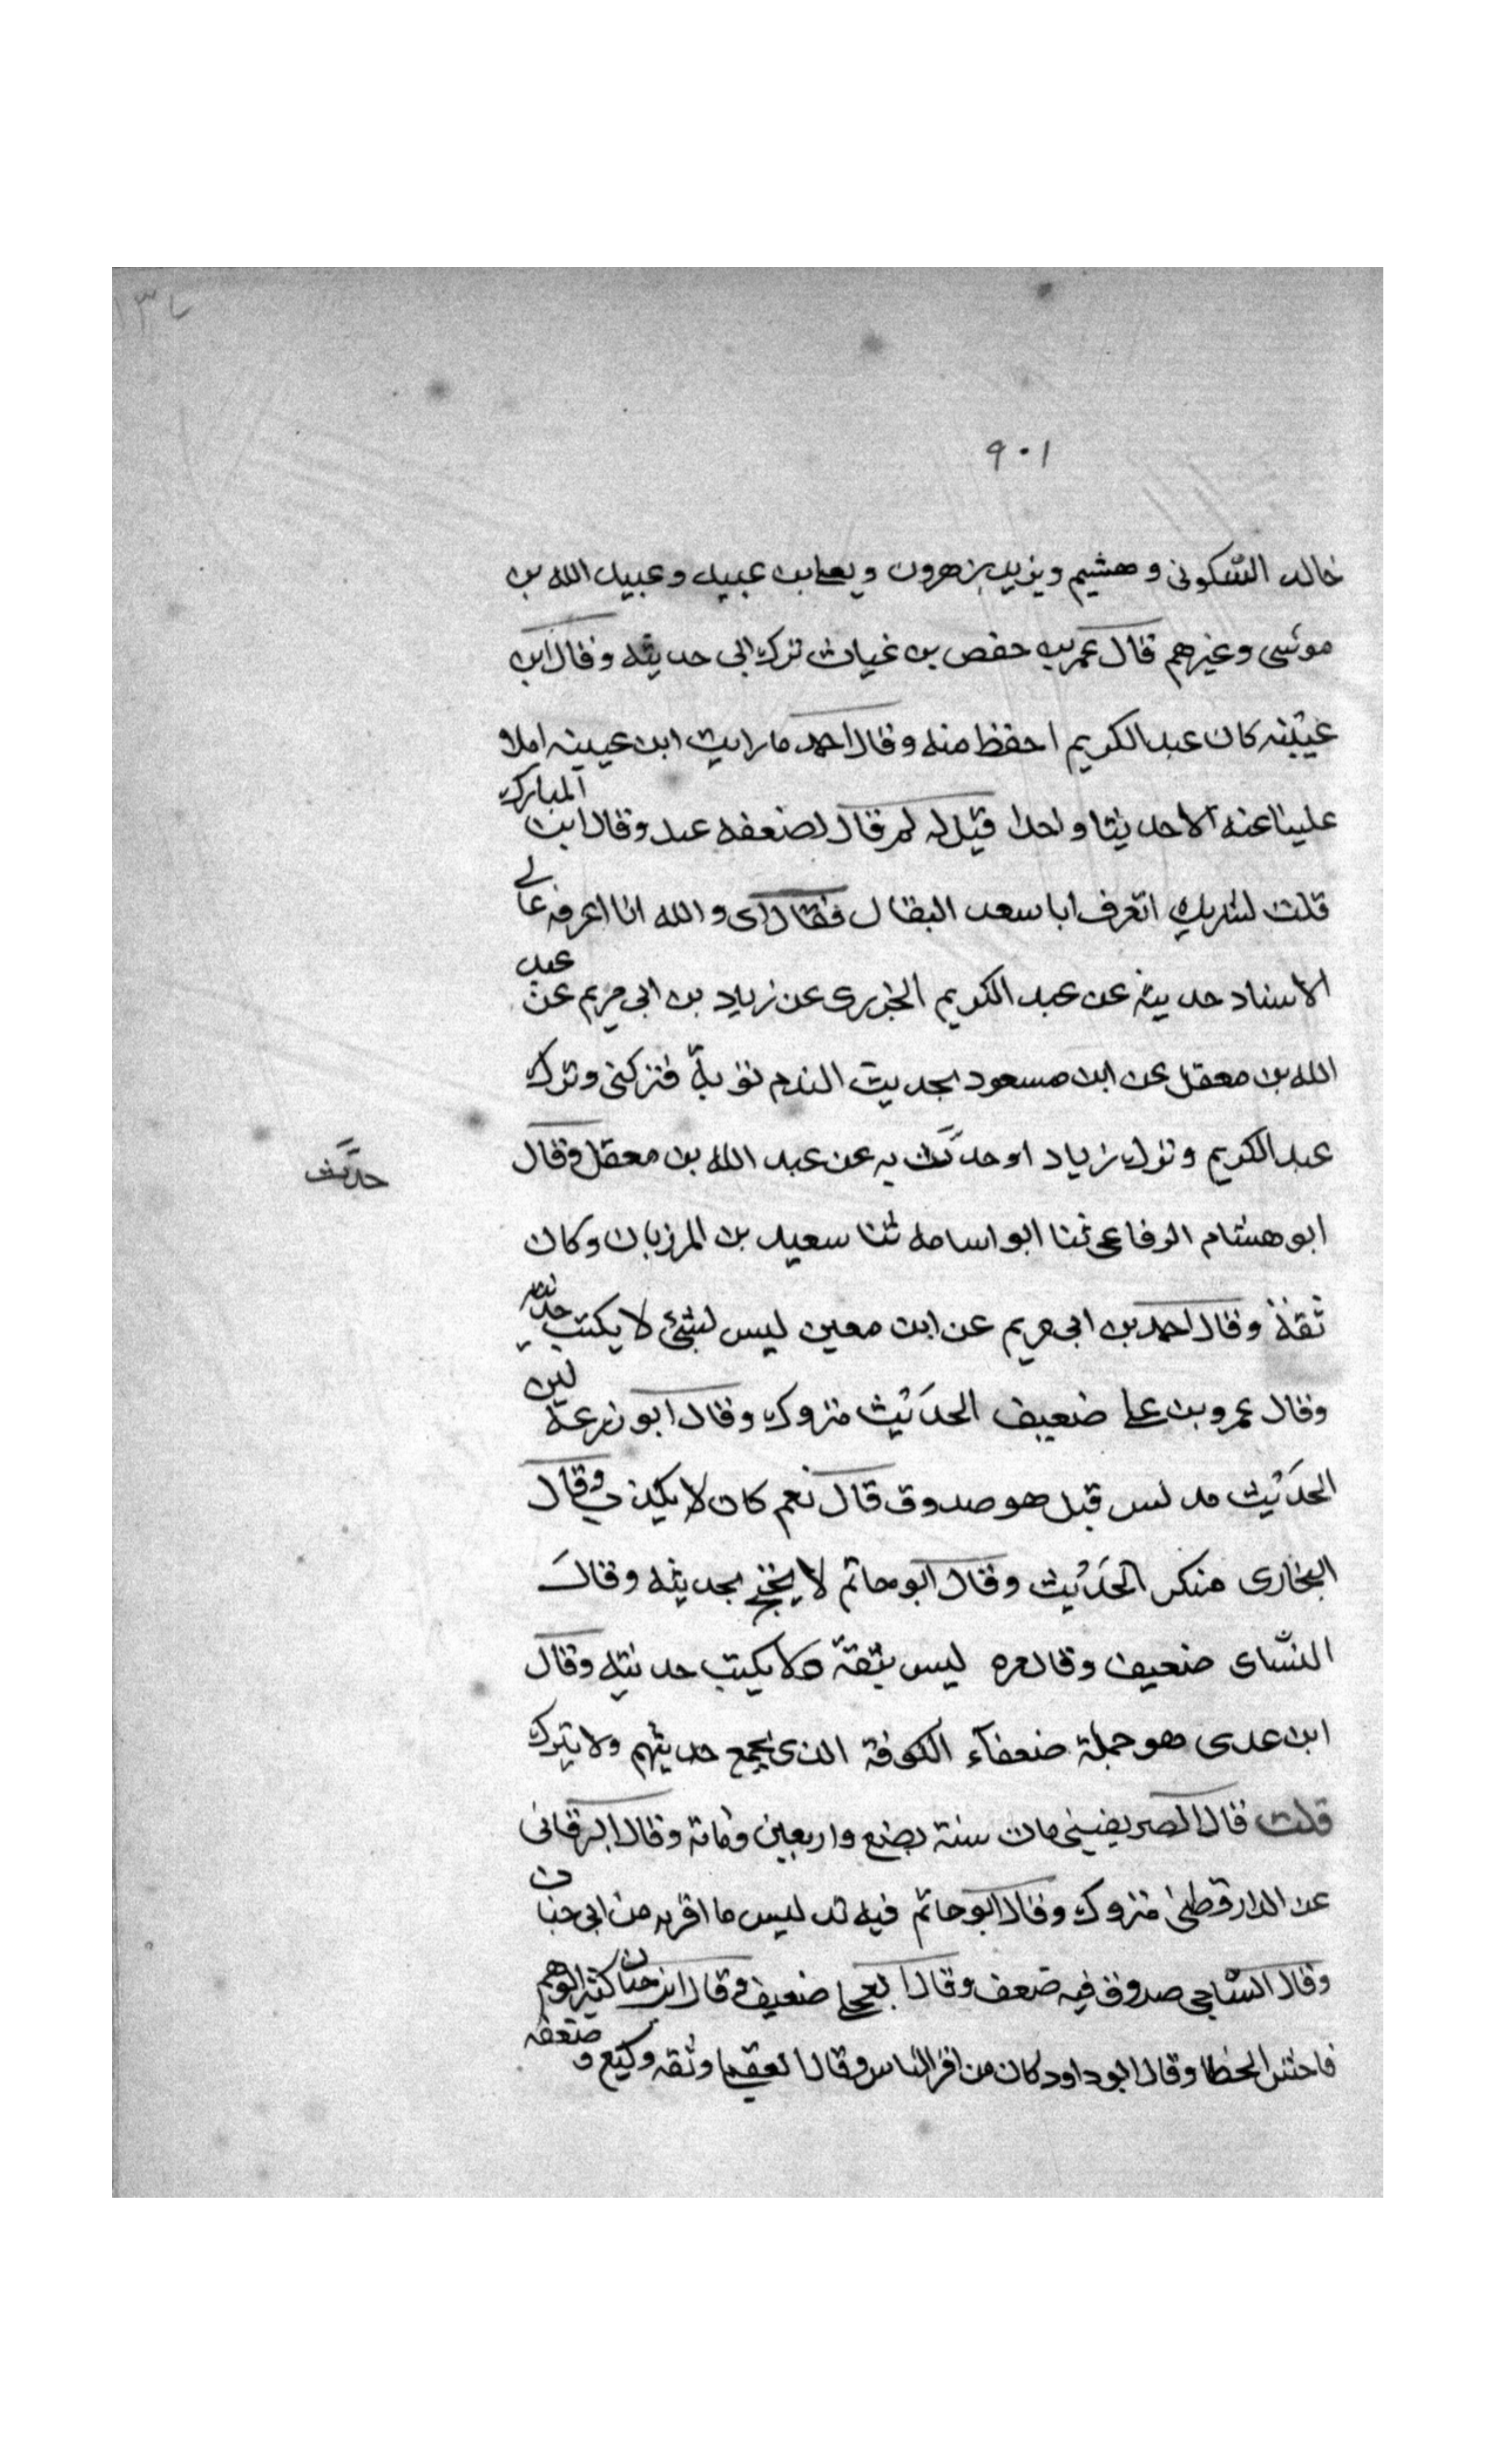 ٩٠١
خالد السكونى وهشيم ويزيد بن هرون ويعلى بن عبيد وعبيد الله بن
موسى وغيرهم قال عمر بن حفص بن غياث ترك ابى حديثه وقال ابن
عيينه كان عبد الكريم احفظ منه وقال احمد ما رايت ابن عيينه املا
علينا عنه الا حديثا واحدا قيل له لم قال لضعفه عنده وقال ابن المبارك
قلت لشريك اتعرف ابا سعد البقال فقال اى والله انا اعرفه عالى
الاسناد حديثه عن عبد الكريم الجزرى عن زياد بن ابى مريم عن عبد
الله بن معقل عن ابن مسعود بحديث الندم توبة فتركنى وترك
عبد الكريم وترك زياد او حدث به عن عبد الله بن معقل وقال
حدث
ابو هشام الرفاعى ثنا ابو اسامه ثنا سعيد بن المرزبان وكان
ثقة وقال احمد بن ابى مريم عن ابن معين ليس بشئ لا يكتب حديثه
وقال عمرو بن على ضعيف الحديث متروك وقال ابو زرعة لين
الحديث مدلس قيل هو صدوق قال نعم كان لا يكذب وقال
البخارى منكر الحديث وقال ابو حاتم لا يحتج بحديثه وقال
النسآى ضعيف وقال مره ليس بثقة ولا يكتب حديثه وقال
ابن عدى هو جملة ضعفآء الكوفة الذى يجمع حديثهم ولا يترك
قلت قال الصريفينى مات سنة بضع واربعين ومائة وقال البرقانى
عن الدارقطنى متروك وقال ابو حاتم فيه تدليس ما اقربه من ابى حبان
وقال الساجى صدوق فيه ضعف وقال العجلى ضعيف وقال ابن حبان كثير الوهم
فاحش الخطا وقال ابو داود كان من اقرا الناس وقال العقيلى وثقه وكيع وضعفه